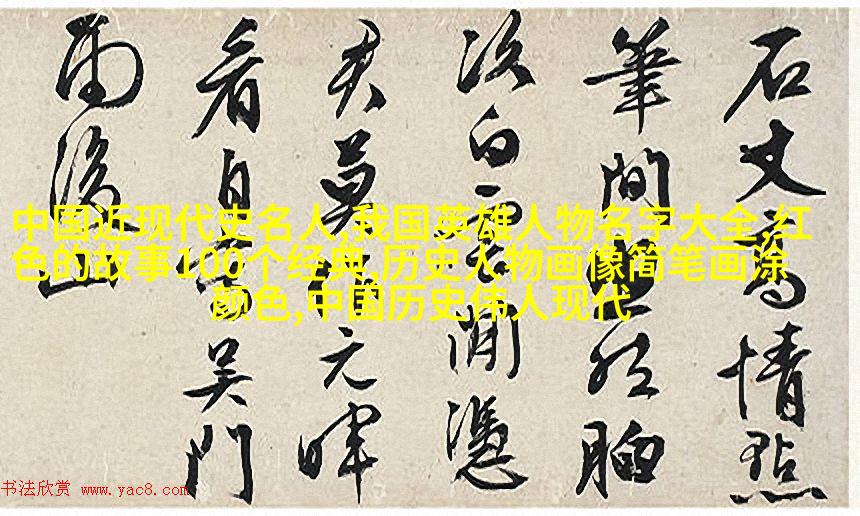 石丈高情點
筆間胸
次白雲閒憑
君莫作元暉
看自是吴門
雨後山
中国近现代史名人,我国英雄人物名字大全,红
色的故事100个经典,历史人物画像简笔画涂
颜色,中国历史伟人现代
书法欣赏 www.yac8.com